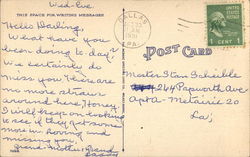 Wed-Eve.
THIS SPACE FOR WRITING MESSAGES
Hello Darling,
What have you
been doing to-day?
We certainly do
miss you. There are
no more straws
around here, Honey
I will keep on looking
to see if they get some
more in. Loving and
missing you,
Grand-mother & Grand
DALLAS
PA.
1 CENT 1
POST CARD
Master Stan Scheible
Papworth Ave
Apt A - Metairie 20
La;